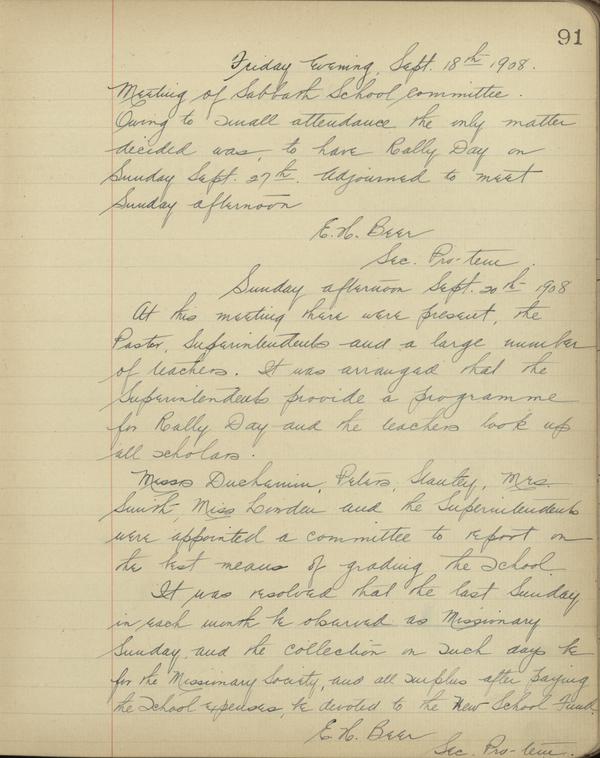 91
Friday Evening, Sept. 18th 1908.
Meeting of Sabbath School Committee.
Owing to small attendance the only matter
decided was, to have Rally Day on
Sunday Sept. 27th. Adjourned to meet
Sunday afternoon
E. H. Beer
Sec. Pro-tem.
Sunday afternoon Sept. 20th 1908
At this meeting there were present, the
Pastor, Superintendents and a large number
of teachers. It was arranged that the
Superintendents provide a programme
for Rally Day and the teachers look up
all scholars.
Messrs Duchemin, Peters, Stanley, Mrs.
Smith, Miss Lowden and the Superintendents
were appointed a committee to report on
the best means of grading the School
It was resolved that the last Sunday
in each month be observed as Missionary
Sunday, and the collection on such days be
for the Missionary Society, and all surplus after paying
the School expenses, be devoted to the New School Fund.
E. H. Beer
Sec. Pro-tem.